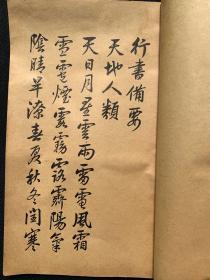 行書備要
天地人類
天日月星雲雨雷電風霜
雪雹煙霧露霽陽氣
陰晴旱潦春夏秋冬閏寒